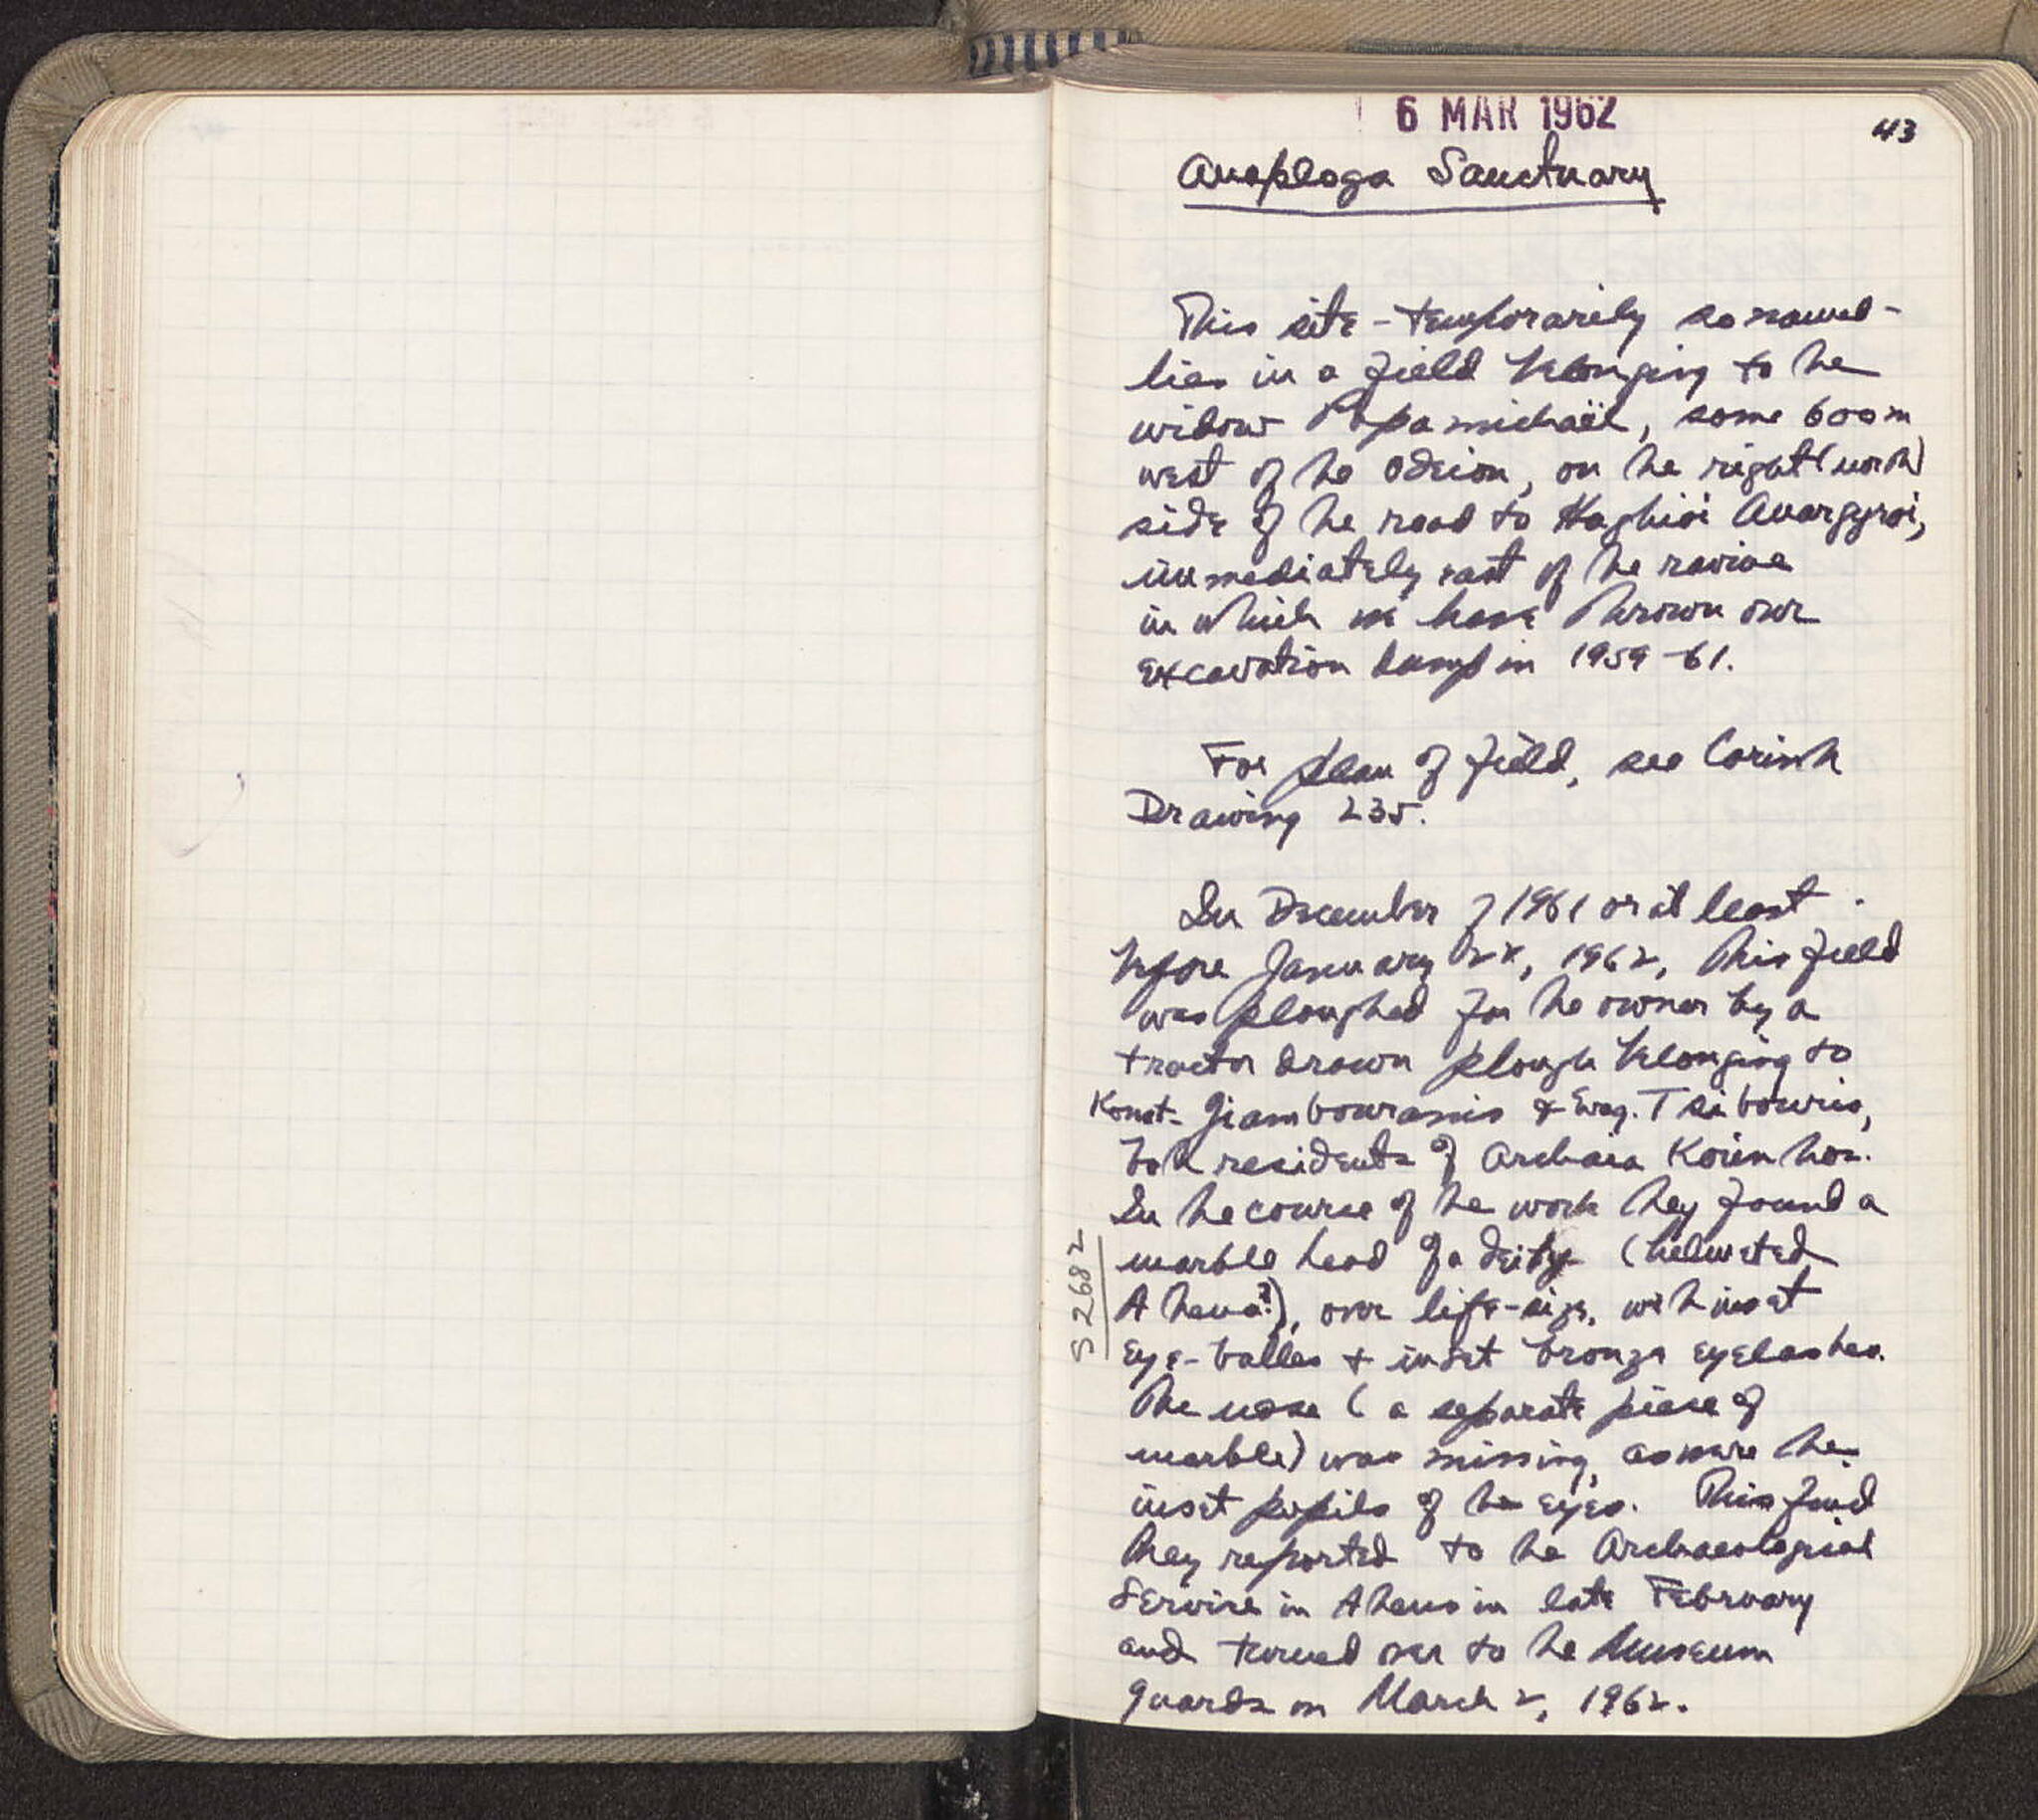 6 MAR 1962
43
Anaploga Sanctuary
This site - temporarily so named -
lies in a field belonging to the
widow Papamichaël, some 600 m
west of the Odeion, on the right (north)
side of the road to Haghioi Anargyroi,
immediately east of the ravine
in which we have thrown our
excavation dump in 1959-61.
For plan of field, see Corinth
Drawing 235.
In December of 1961 or at least
before January, 1962, this field
was ploughed for the owner by a
tractor drawn plough belonging to
Konst. Giambouranis & Evag. Tsibouris,
both residents of Archaia Korinthos.
In the course of the work they found a
marble head of a deity (helmeted
Athena?), over life-size, with inset
eye-balles & inset bronze eyelashes.
The nose (a separate piece of
marble) was missing, as were the
inset pupils of the eyes. This find
they reported to the Archaeological
Service in Athens in late February
and turned over to the Museum
guards on March 2, 1962.
S 2682